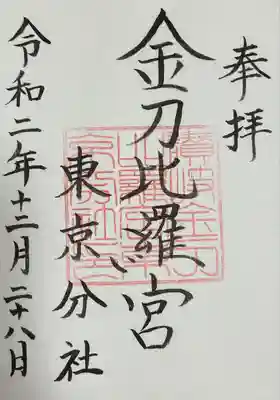 奉拝
金刀比羅宮
東京分社
令和二年十二月二十八日